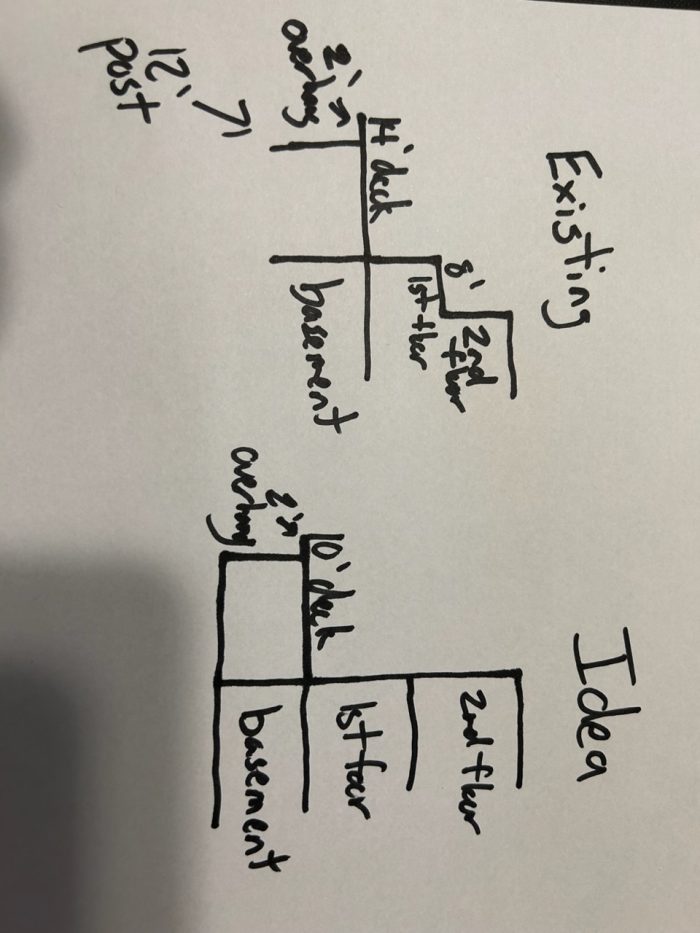 Existing
8'
1st floor
2nd
floor
14' deck
2'
overhang
12'
post
basement
Idea
2nd floor
1st foor
10' deck
2'
overhang
basement